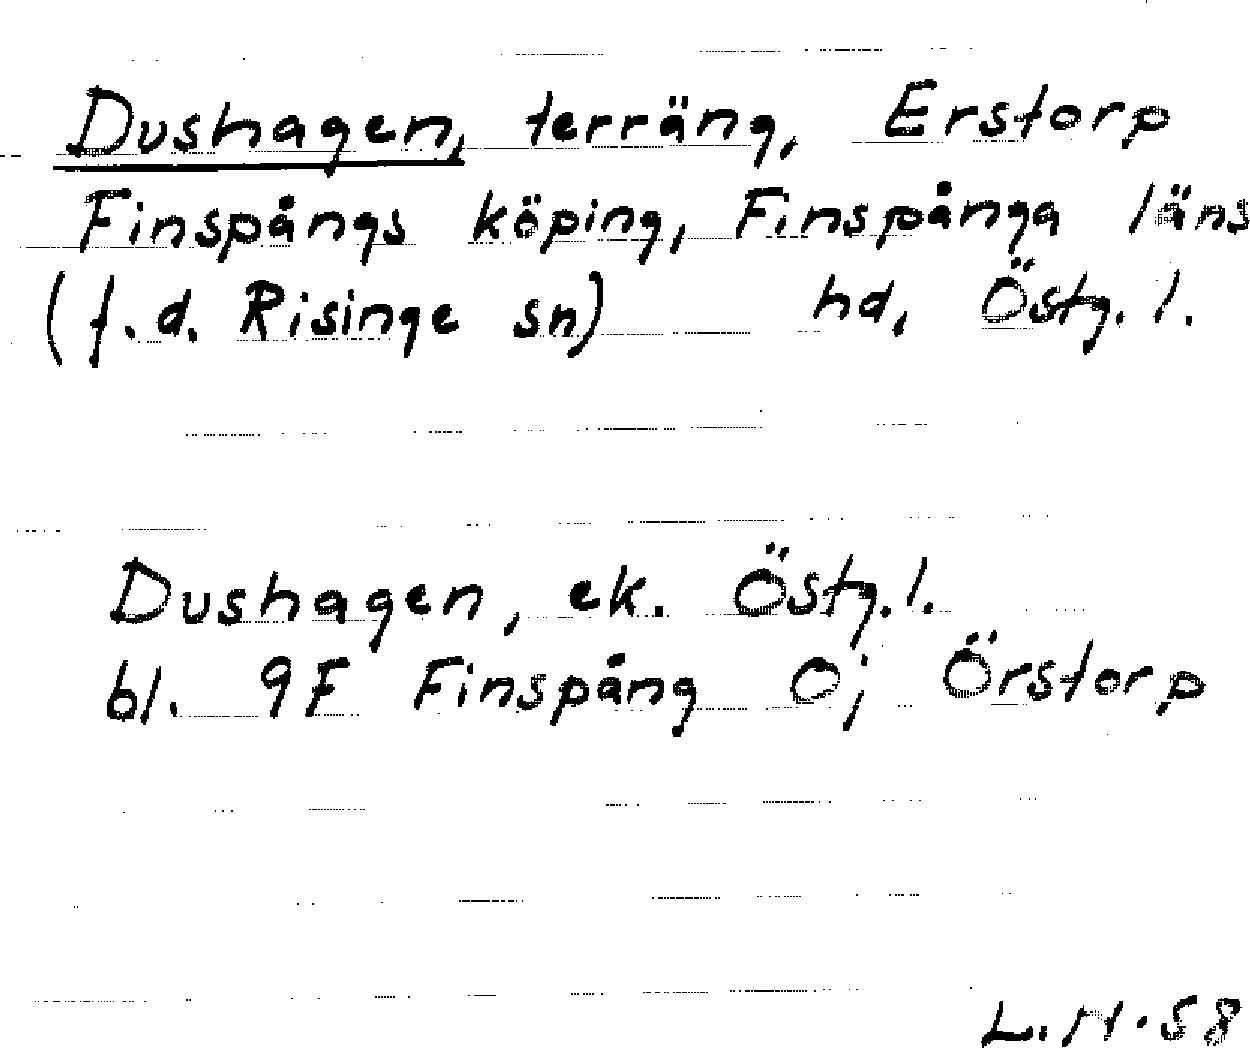 Dushagen, terräng, Erstorp
Finspångs köping, Finspånga läns
(f.d. Risinge sn) hd, Östg.l.
Dushagen, ek. Östg.l.
bl. 9F Finspång Oj Örstorp
58